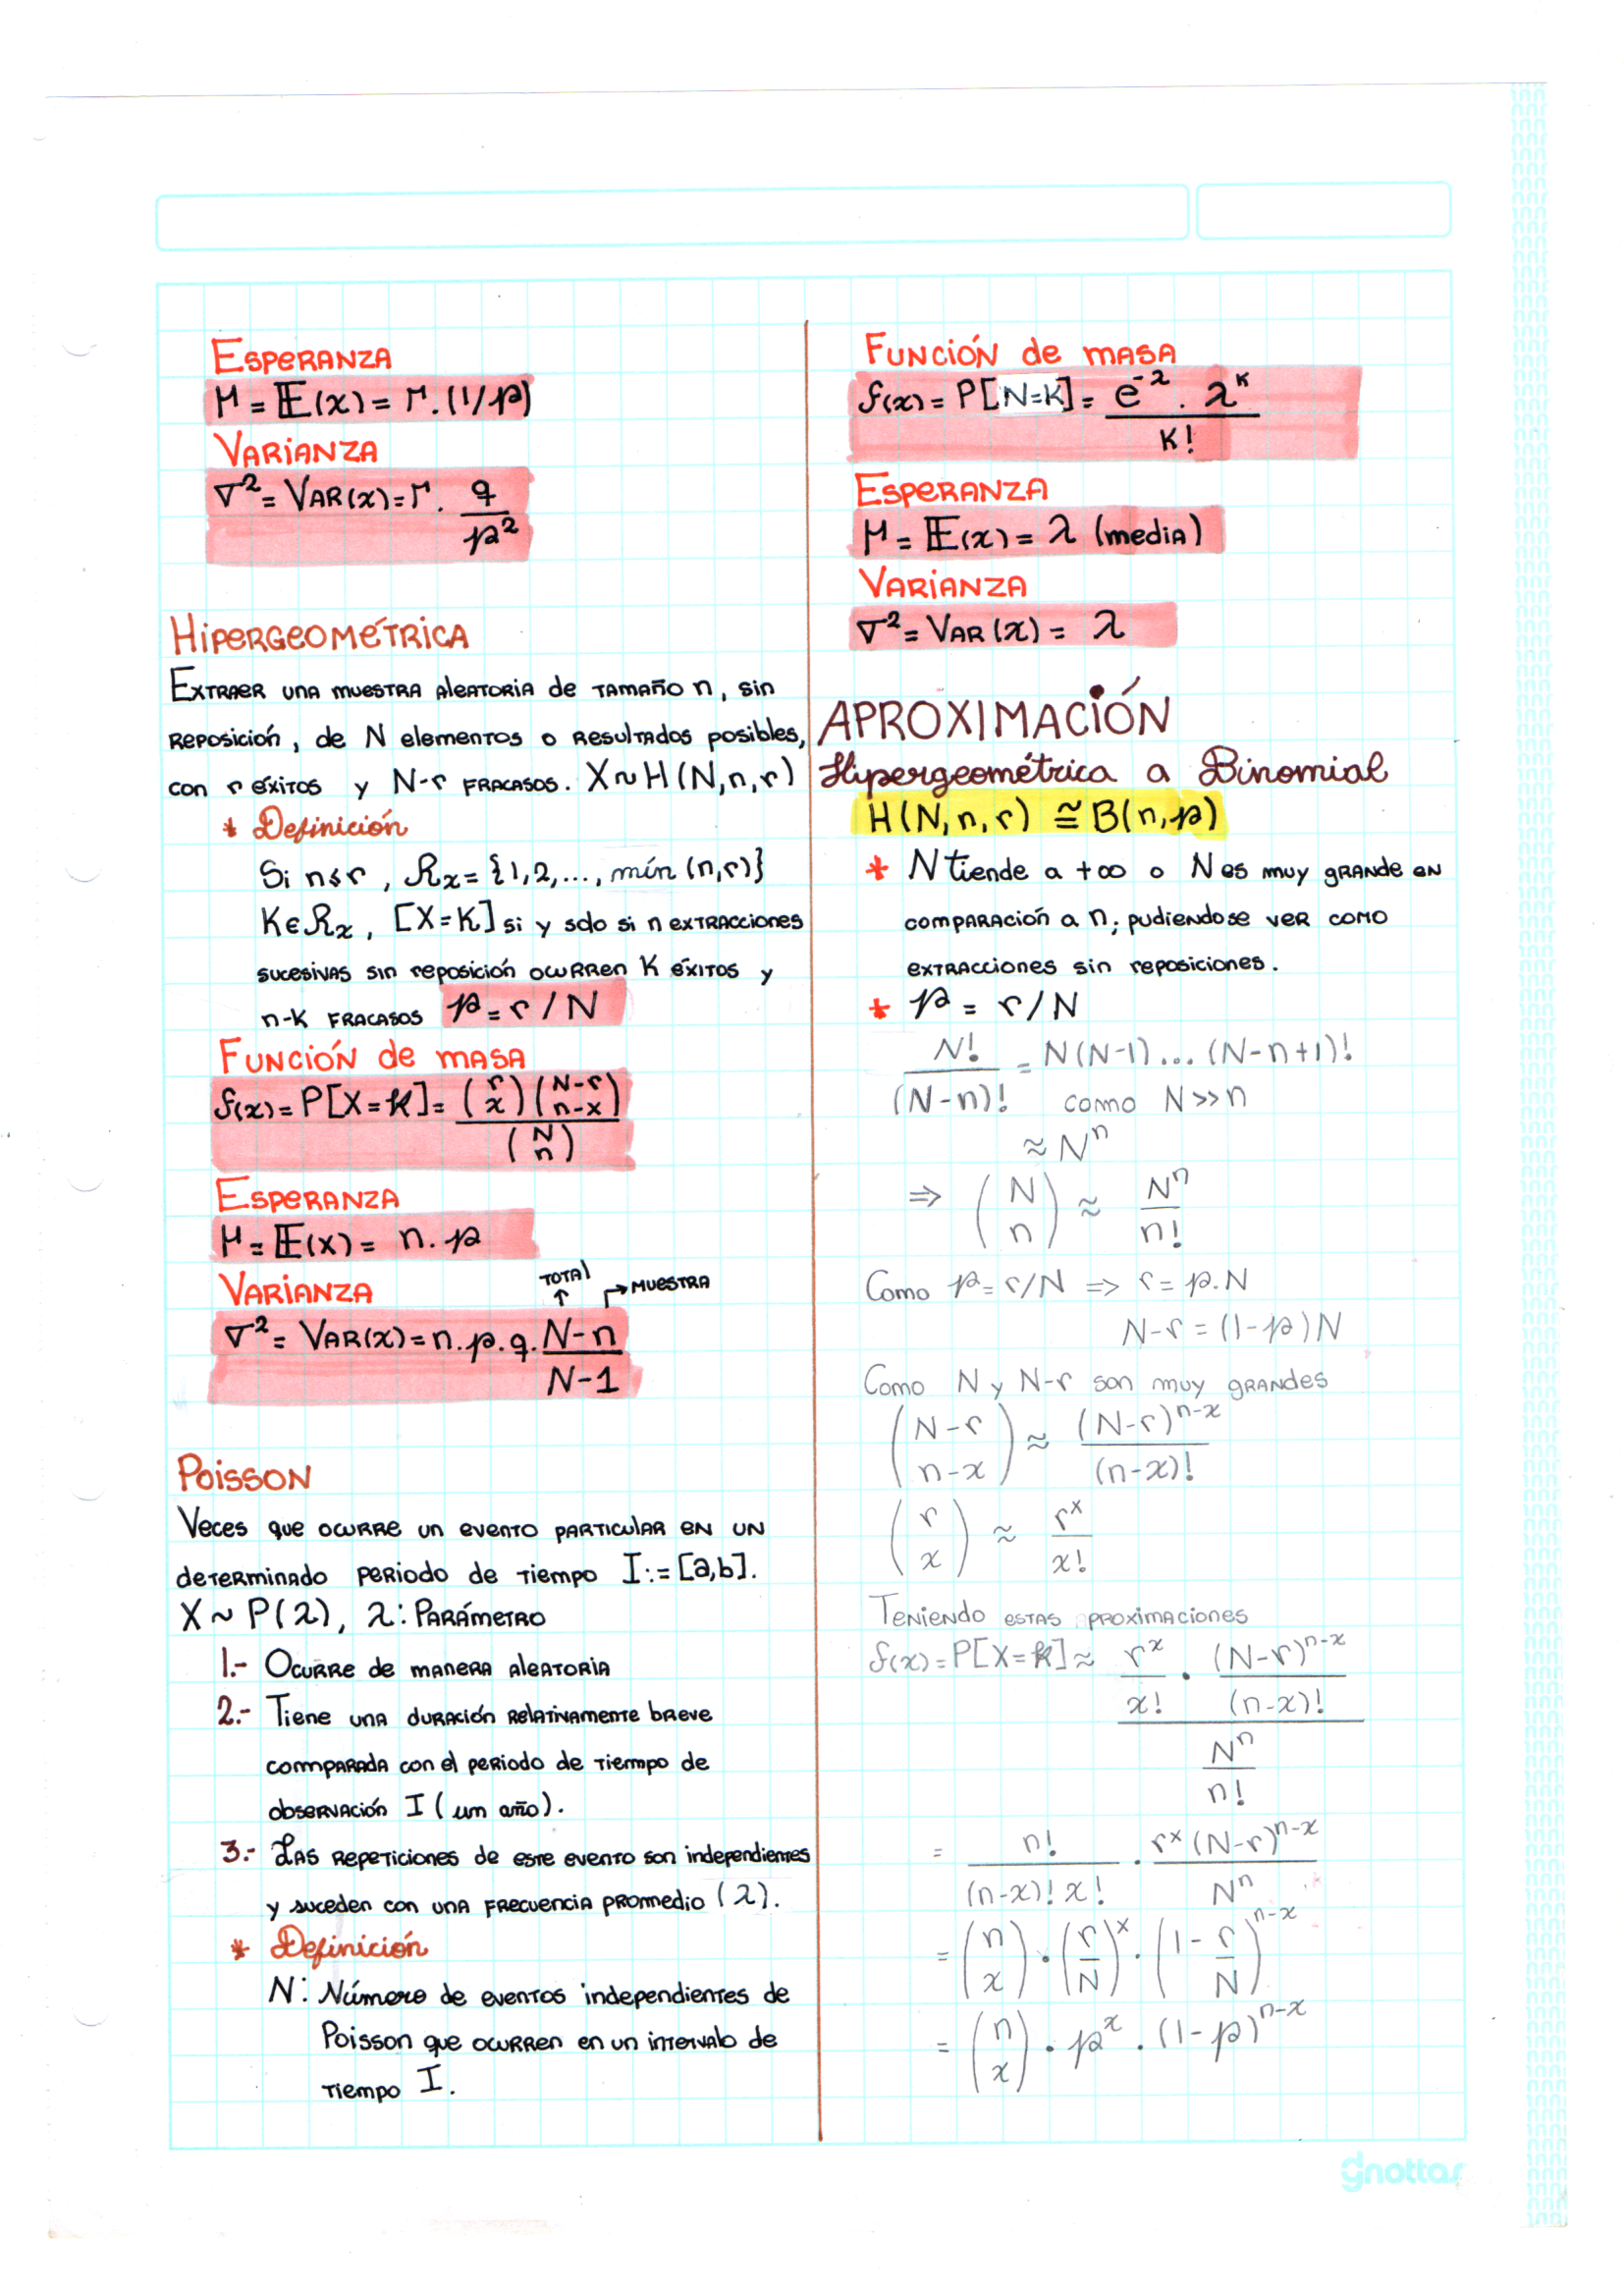 Esperanza
μ = E(x) = r.(1/p)
Varianza
σ² = Var(x) = r. q/p²
Hipergeométrica
Extraer una muestra aleatoria de tamaño n, sin
reposición, de N elementos o resultados posibles,
con r éxitos y N-r fracasos. X~H(N,n,r)
* Definición
Si n≤r, Rx = {1,2,..., mín (n,r)}
K∈Rx, [X=K] si y solo si n extracciones
sucesivas sin reposición ocurren K éxitos y
n-K fracasos p = r/N
Función de masa
f(x) = P[X=k] = (r x)(N-r n-x) / (N n)
Esperanza
μ = E(x) = n.p
Varianza
Total
↑ ↱ → Muestra
σ² = Var(x) = n.p.q. N-n / N-1
Poisson
Veces que ocurre un evento particular en un
determinado periodo de tiempo I:=[a,b].
X~P(λ), λ: Parámetro
1.- Ocurre de manera aleatoria
2.- Tiene una duración relativamente breve
comparada con el periodo de tiempo de
observación I (um año).
3.- Las repeticiones de este evento son independientes
y suceden con una frecuencia promedio (λ).
* Definición
N: Número de eventos independientes de
Poisson que ocurren en un intervalo de
tiempo I.
Función de masa
f(x) = P[N=K] = e^-λ . λ^K / K!
Esperanza
μ = E(x) = λ (media)
Varianza
σ² = Var(x) = λ
APROXIMACIÓN
Hipergeométrica a Binomial
H(N,n,r) ≅ B(n,p)
* N tiende a +∞ o N es muy grande en
comparación a n; pudiendose ver como
extracciones sin reposiciones.
* p = r/N
N! / (N-n)! = N(N-1)...(N-n+1)!
como N>>n
≈ N^n
⇒ (N n) ≈ N^n / n!
Como p = r/N ⇒ r = p.N
N-r = (1-p)N
Como N y N-r son muy grandes
(N-r n-x) ≈ (N-r)^n-x / (n-x)!
(r x) ≈ r^x / x!
Teniendo estas aproximaciones
f(x) = P[X=k] ≈ r^x / x! · (N-r)^n-x / (n-x)!
N^n / n!
= n! / (n-x)! x! · r^x (N-r)^n-x / N^n
= (n x) · (r/N)^x · (1 - r/N)^n-x
= (n x) · p^x · (1-p)^n-x
gnottas